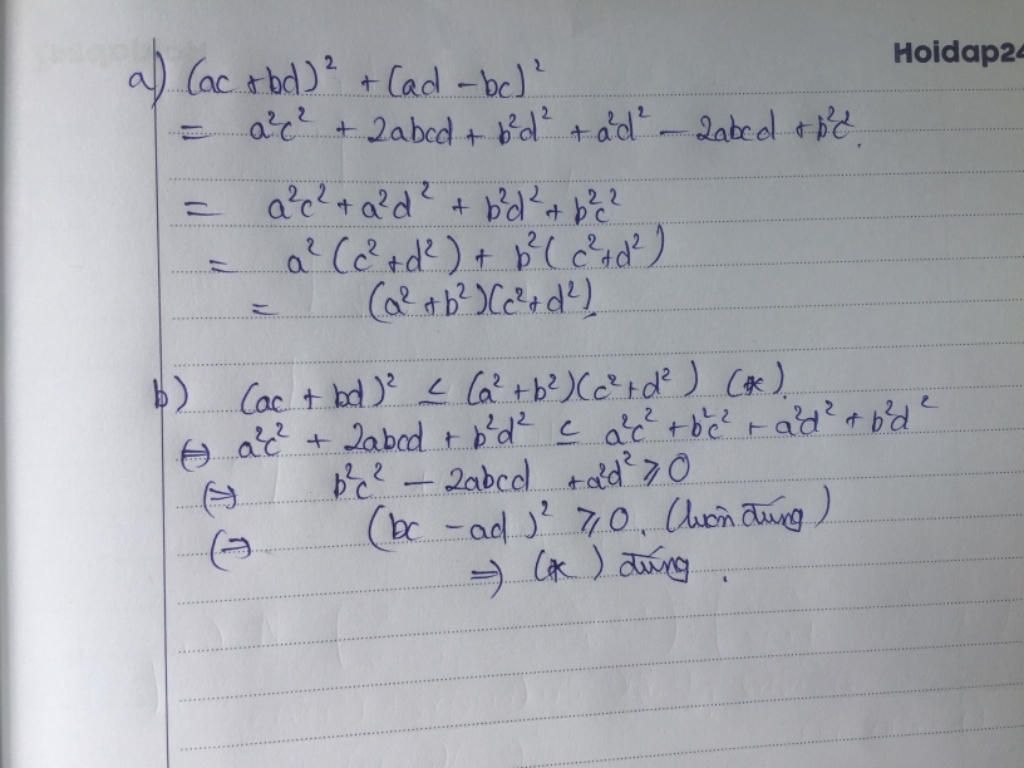 Hoidap24
a) (ac + bd)² + (ad - bc)²
= a²c² + 2abcd + b²d² + a²d² - 2abcd + b²c².
= a²c² + a²d² + b²d² + b²c²
= a²(c² + d²) + b²(c² + d²)
= (a² + b²)(c² + d²).
b) (ac + bd)² ≤ (a² + b²)(c² + d²) (*).
⇔ a²c² + 2abcd + b²d² ≤ a²c² + b²c² + a²d² + b²d²
⇔ b²c² - 2abcd + a²d² ≥ 0
⇔ (bc - ad)² ≥ 0. (luôn đúng)
⇒ (*) đúng.